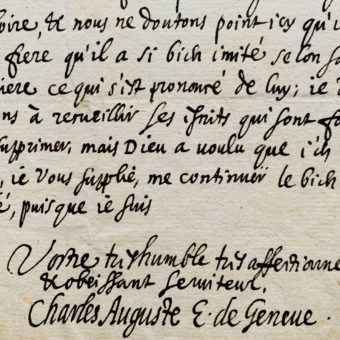 oire, & nous ne doutons point icy qu'i
fiere qu'il a si bien imité selon sa
iere ce qui s'est prononcé de luy; ie
ns à recueillir ses escrits qui sont
supprimer, mais Dieu a voulu que i'en
, ie vous supplie, me continuer le bien
é, puis que ie suis
Vostre treshumble tres affectionné
& obeissant serviteur.
Charles Auguste E. de Geneve.